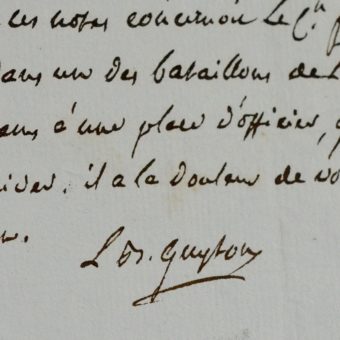 ces notes concernon le C.en
dans un des bataillons de
à une place d'officier,
il a la douleur de
L. B. Guyton